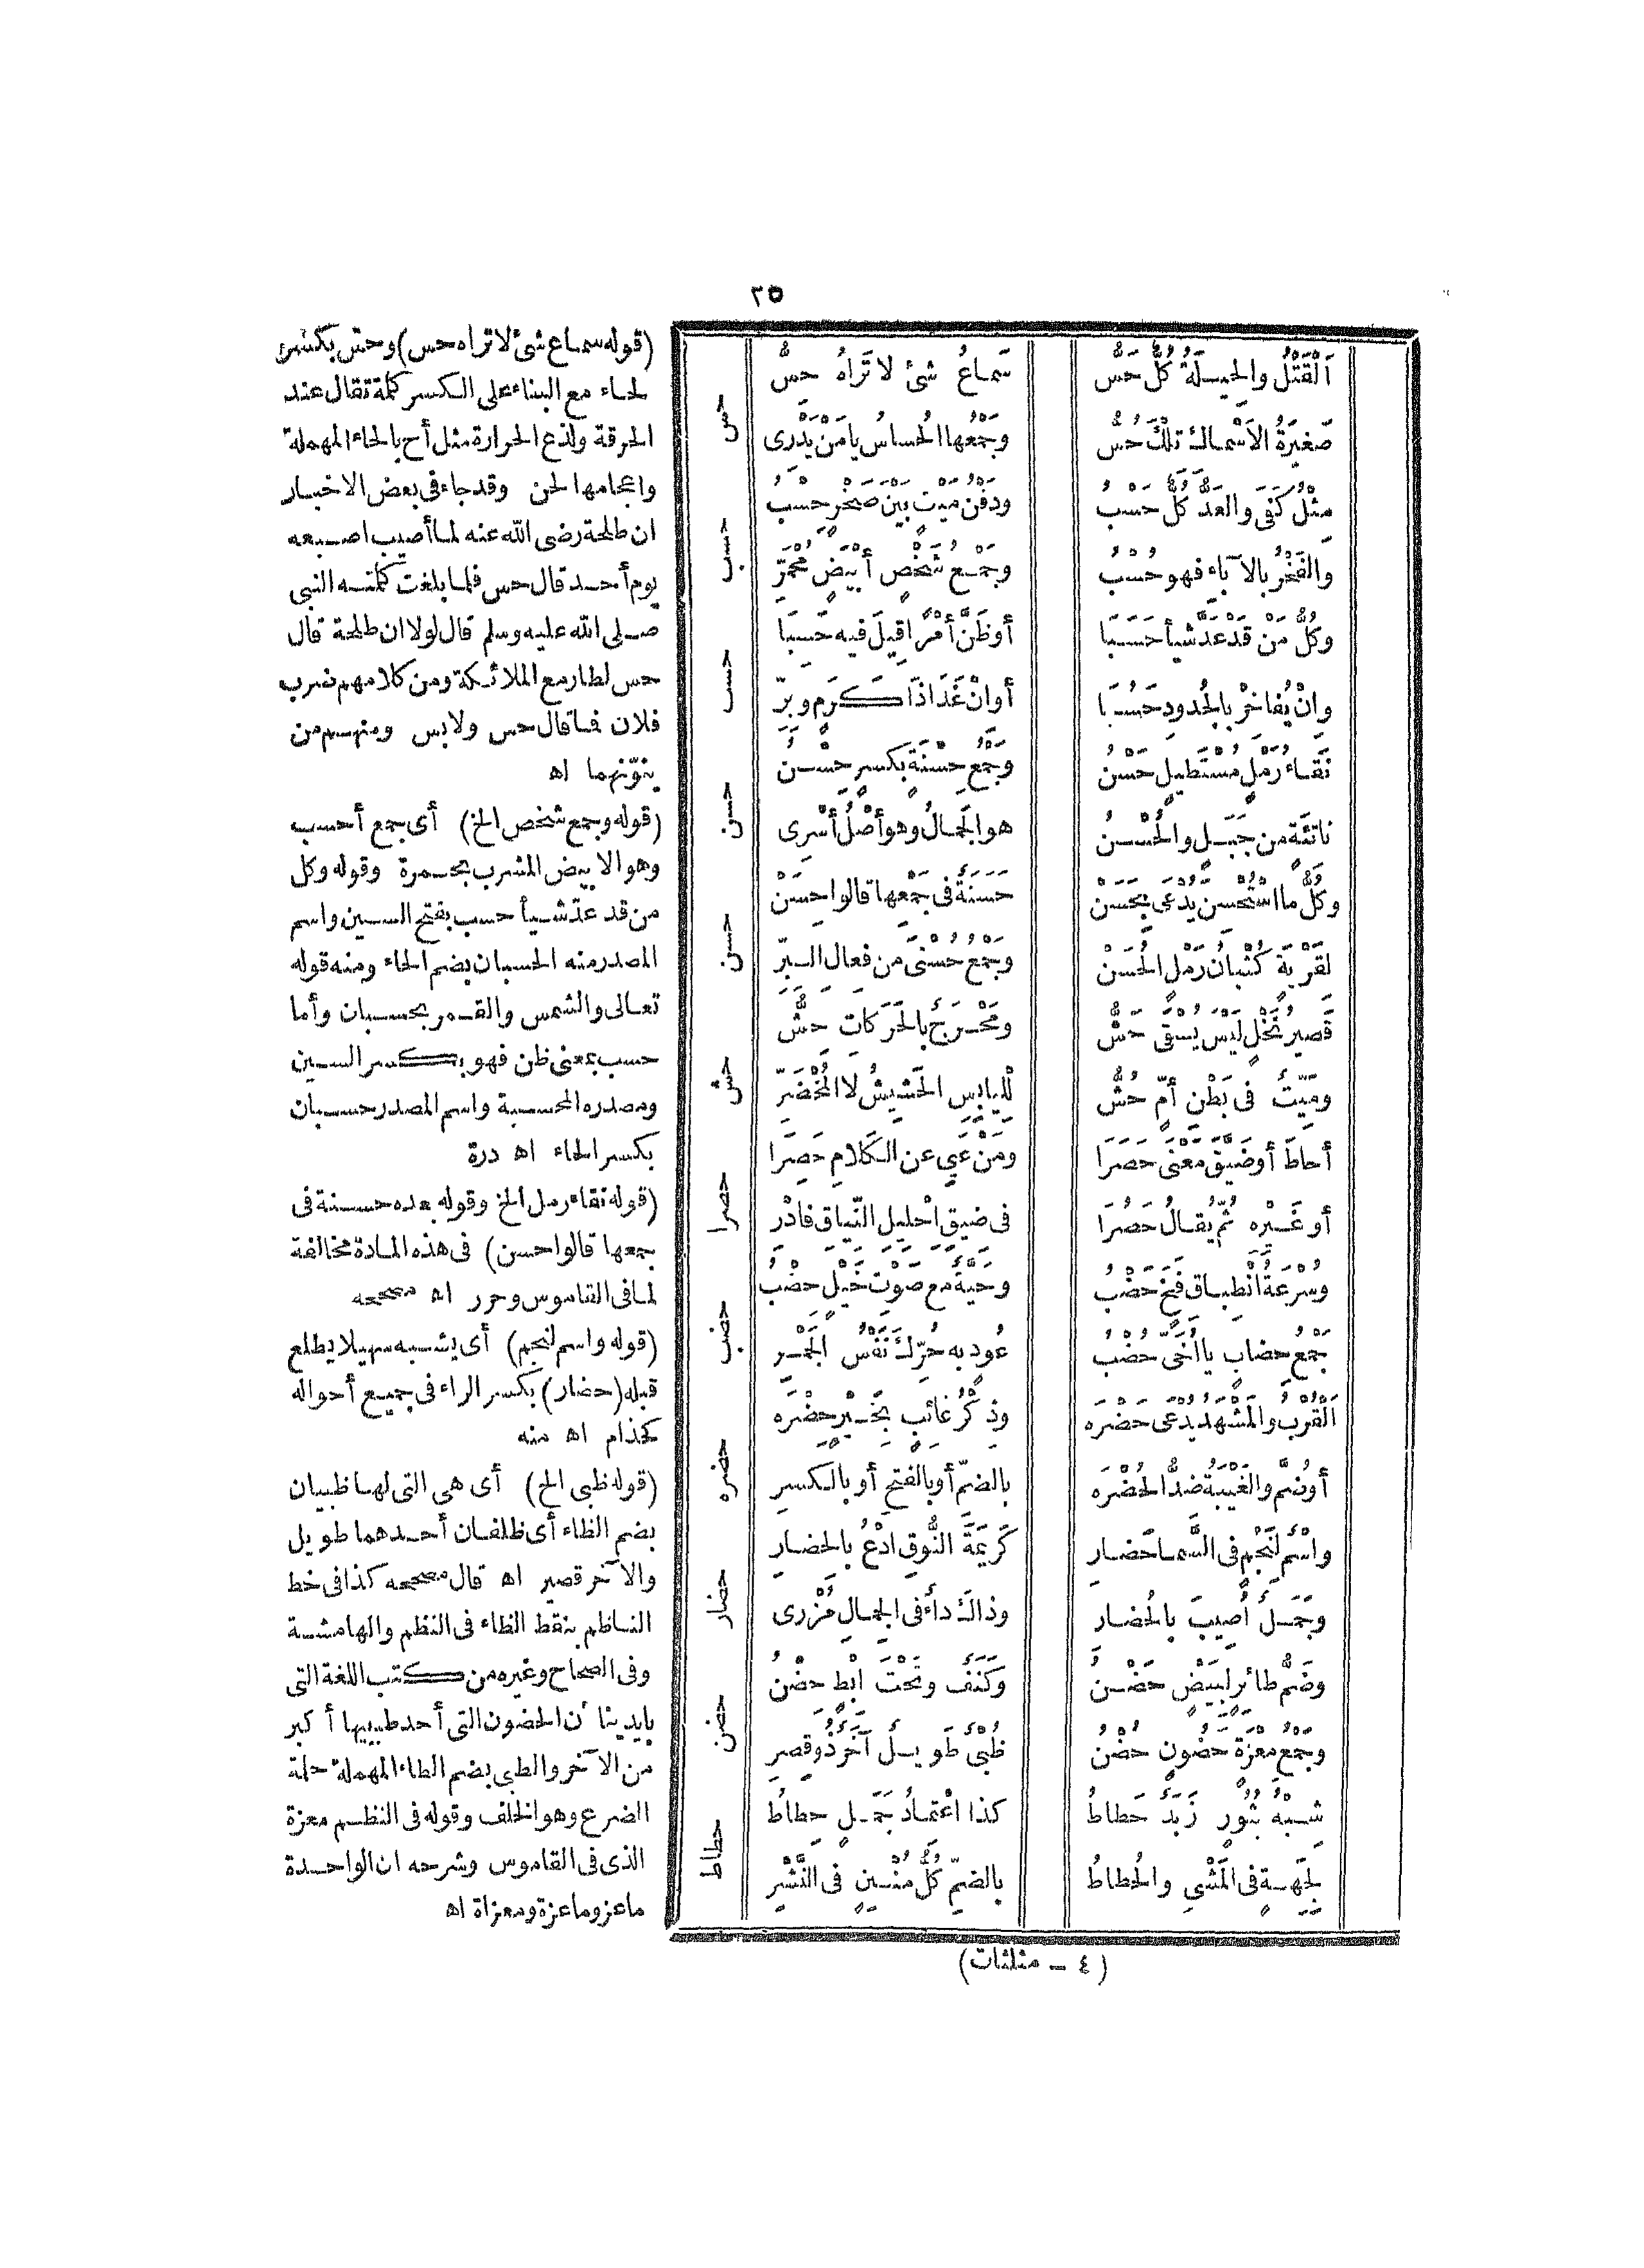 ٢٥
اَلْقَتْلُ والحِيلَةُ كُلُّ حَسّ
سَمَاعُ شئ لا تَرَاهُ حِسُّ
صَغِيرَةُ الأَسْمَاك تلْكَ حُسُّ
وجَمْعُها الحُساسُ يا مَنْ يَدْرِى
حس
مِثْلُ كَفَى والعَدُّ كُلٌّ حَسْبُ
ودَفْنُ مَيْتٍ بَيْنَ صَخْرٍ حِسْبُ
والفَخْرُ بالآباءِ فهو حُسْبُ
وجَمْعُ شَخْصٍ أَبْيَضٍ مُحْمَرِّ
حسب
وكُلُّ مَنْ قَدْ عَدَّ شَيأ حَسَبَا
أوظَنَّ أَمْرًا قِيلَ فيه حَسِبَا
وانْ يُفاخِرْ بالجُدودِ حَسُبَا
أوانْ غَدَا ذَا كَرَمٍ وبِرِّ
حسب
نَقَاءُ رَمْلٍ مُسْتَطِيلٍ حَسْنُ
وَجَمْعُ حِسْنَةٍ بِكسرٍ حِسْنُ
ناتئَةٍ من جَبَلٍ والحُسْنُ
هو الجَمالُ وهو أَصْلُ أَسْرِى
حسن
وكُلُّ ما استُحْسِنَ يُدْعَى بحَسَنْ
حَسَنَةٌ فى جَمْعِها قالوا حِسَنْ
لقَرْيَةٍ كُثْبانُ رَمْلٍ الحُسَنْ
وجَمْعُ حُسْنَى من فِعالِ البِرِّ
حسن
قَصِيرُ نَخْلٍ لَيْسَ يُسْقَى حَشُّ
ومَخْرَجٌ بالحَرَكاتِ حِشُّ
ومَيّتٌ فى بَطْنِ أُمٍّ حُشُّ
لليابِسِ الحَشِيشُ لا المُخْضَرِّ
حش
أحاطَ أو ضَيَّقَ مَعْنَى حَصَرَا
ومَنْ عَيِى عن الكَلامِ حَصِرَا
أو غَيْرِه ثُمَّ يُقالُ حَصُرَا
فى ضِيقِ احْلِيلِ النِّياقِ فادْرِ
حصرا
وسُرْعَةُ انْطِباقِ فَخٍّ حَضْبُ
وحَيَّةٌ مَع صَوْتِ خَيْلٍ حِضْبُ
جَمْعُ حضابٍ يا أُخَىَّ حُضْبُ
عُود به حُرّك نَفْسُ الجَمْرِ
حضب
القُرْبُ والمَشْهَدُ يُدْعَى حَضْرَه
وذِكْرُ غائبٍ بخَيْرٍ حِضْرَه
أو ضُمَّ والغَيْبَةُ ضِدُّ الحُضْرَه
بالضمّ أو بالفتح أو بالكسرِ
حضره
واسْمٌ لنَجْمٍ فى السَّما حَضَارِ
كَرِيمَةَ النُّوقِ ادْعُ بالحِضارِ
وجَمَلٌ أُصِيبَ بالحُضارِ
وذاك داءٌ فى الجِمالِ مُزْرِى
حضار
وضَمُّ طائرٍ لِبَيْضٍ حَضْنُ
وكَنَفٌ وتَحْتَ ابْطٍ حِضْنُ
وجَمْعُ مِعْزَةٍ حَضُونٍ حُضْنُ
ظُبْىٌ طَويلٌ آخَرٌ ذُو قِصَرِ
حضن
شِبْهُ بُثُورٍ زَبَدٌ حَطاطُ
كذا اعْتِمادُ جَمَلٍ حِطاطُ
لِجهةٍ فى المَشْيِ والحُطاطُ
بالضمّ كُلُّ مُنْتِنٍ فى النَّشْرِ
حطاط
(قوله سماع شئ لا تراه حس) وحس بكسر
لحاء مع البناء على الكسر كلمة تقال عند
الحرقة ولذع الحرارة مثل أح بالحاء المهملة
واعجامها لحن وقد جاء فى بعض الاخبار
ان طلحة رضى الله عنه لما أصيب اصبعه
يوم أحد قال حس فلما بلغت كلمته النبى
صلى الله عليه وسلم قال لولا ان طلحة قال
حس لطار مع الملائكة ومن كلامهم ضرب
فلان فما قال حس ولا بس ومنهم من
ينوّنهما اه
(قوله وجمع شخص الخ) أى جمع أحسب
وهو الابيض المشرب بحمرة وقوله وكل
من قد عدّ شيأ حسب بفتح السين واسم
المصدر منه الحسبان بضم الحاء ومنه قوله
تعالى والشمس والقمر بحسبان وأما
حسب بمعنى ظن فهو بكسر السين
ومصدره المحسبة واسم المصدر حسبان
بكسر الحاء اه درة
(قوله نقاء رمل الخ وقوله بعده حسنة فى
جمعها قالوا حسن) فى هذه المادة مخالفة
لما فى القاموس وحرر اه مصححه
(قوله واسم لنجم) أى يشبه سهيلا يطلع
قبله (حضار) بكسر الراء فى جميع أحواله
كحذام اه منه
(قوله ظبى الخ) أى هى التى لها ظبيان
بضم الظاء أى ظلفان أحدهما طويل
والآخر قصير اه قال مصححه كذا فى خط
الناظم بنقط الظاء فى النظم والهامشة
وفى الصحاح وغيره من كتب اللغة التى
بايدينا أن الحضون التى أحد طبييها أكبر
من الآخر والطبى بضم الطاء المهملة حلمة
الضرع وهو الخلف وقوله فى النظم معزة
الذى فى القاموس وشرحه ان الواحدة
ماعز وماعزة ومعزاة اه
(٤ - مثلثات)